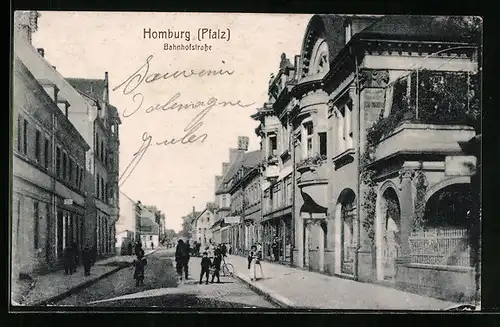 Homburg (Pfalz)
Bahnhofstraße
Souvenir
D'alemagne
Jules